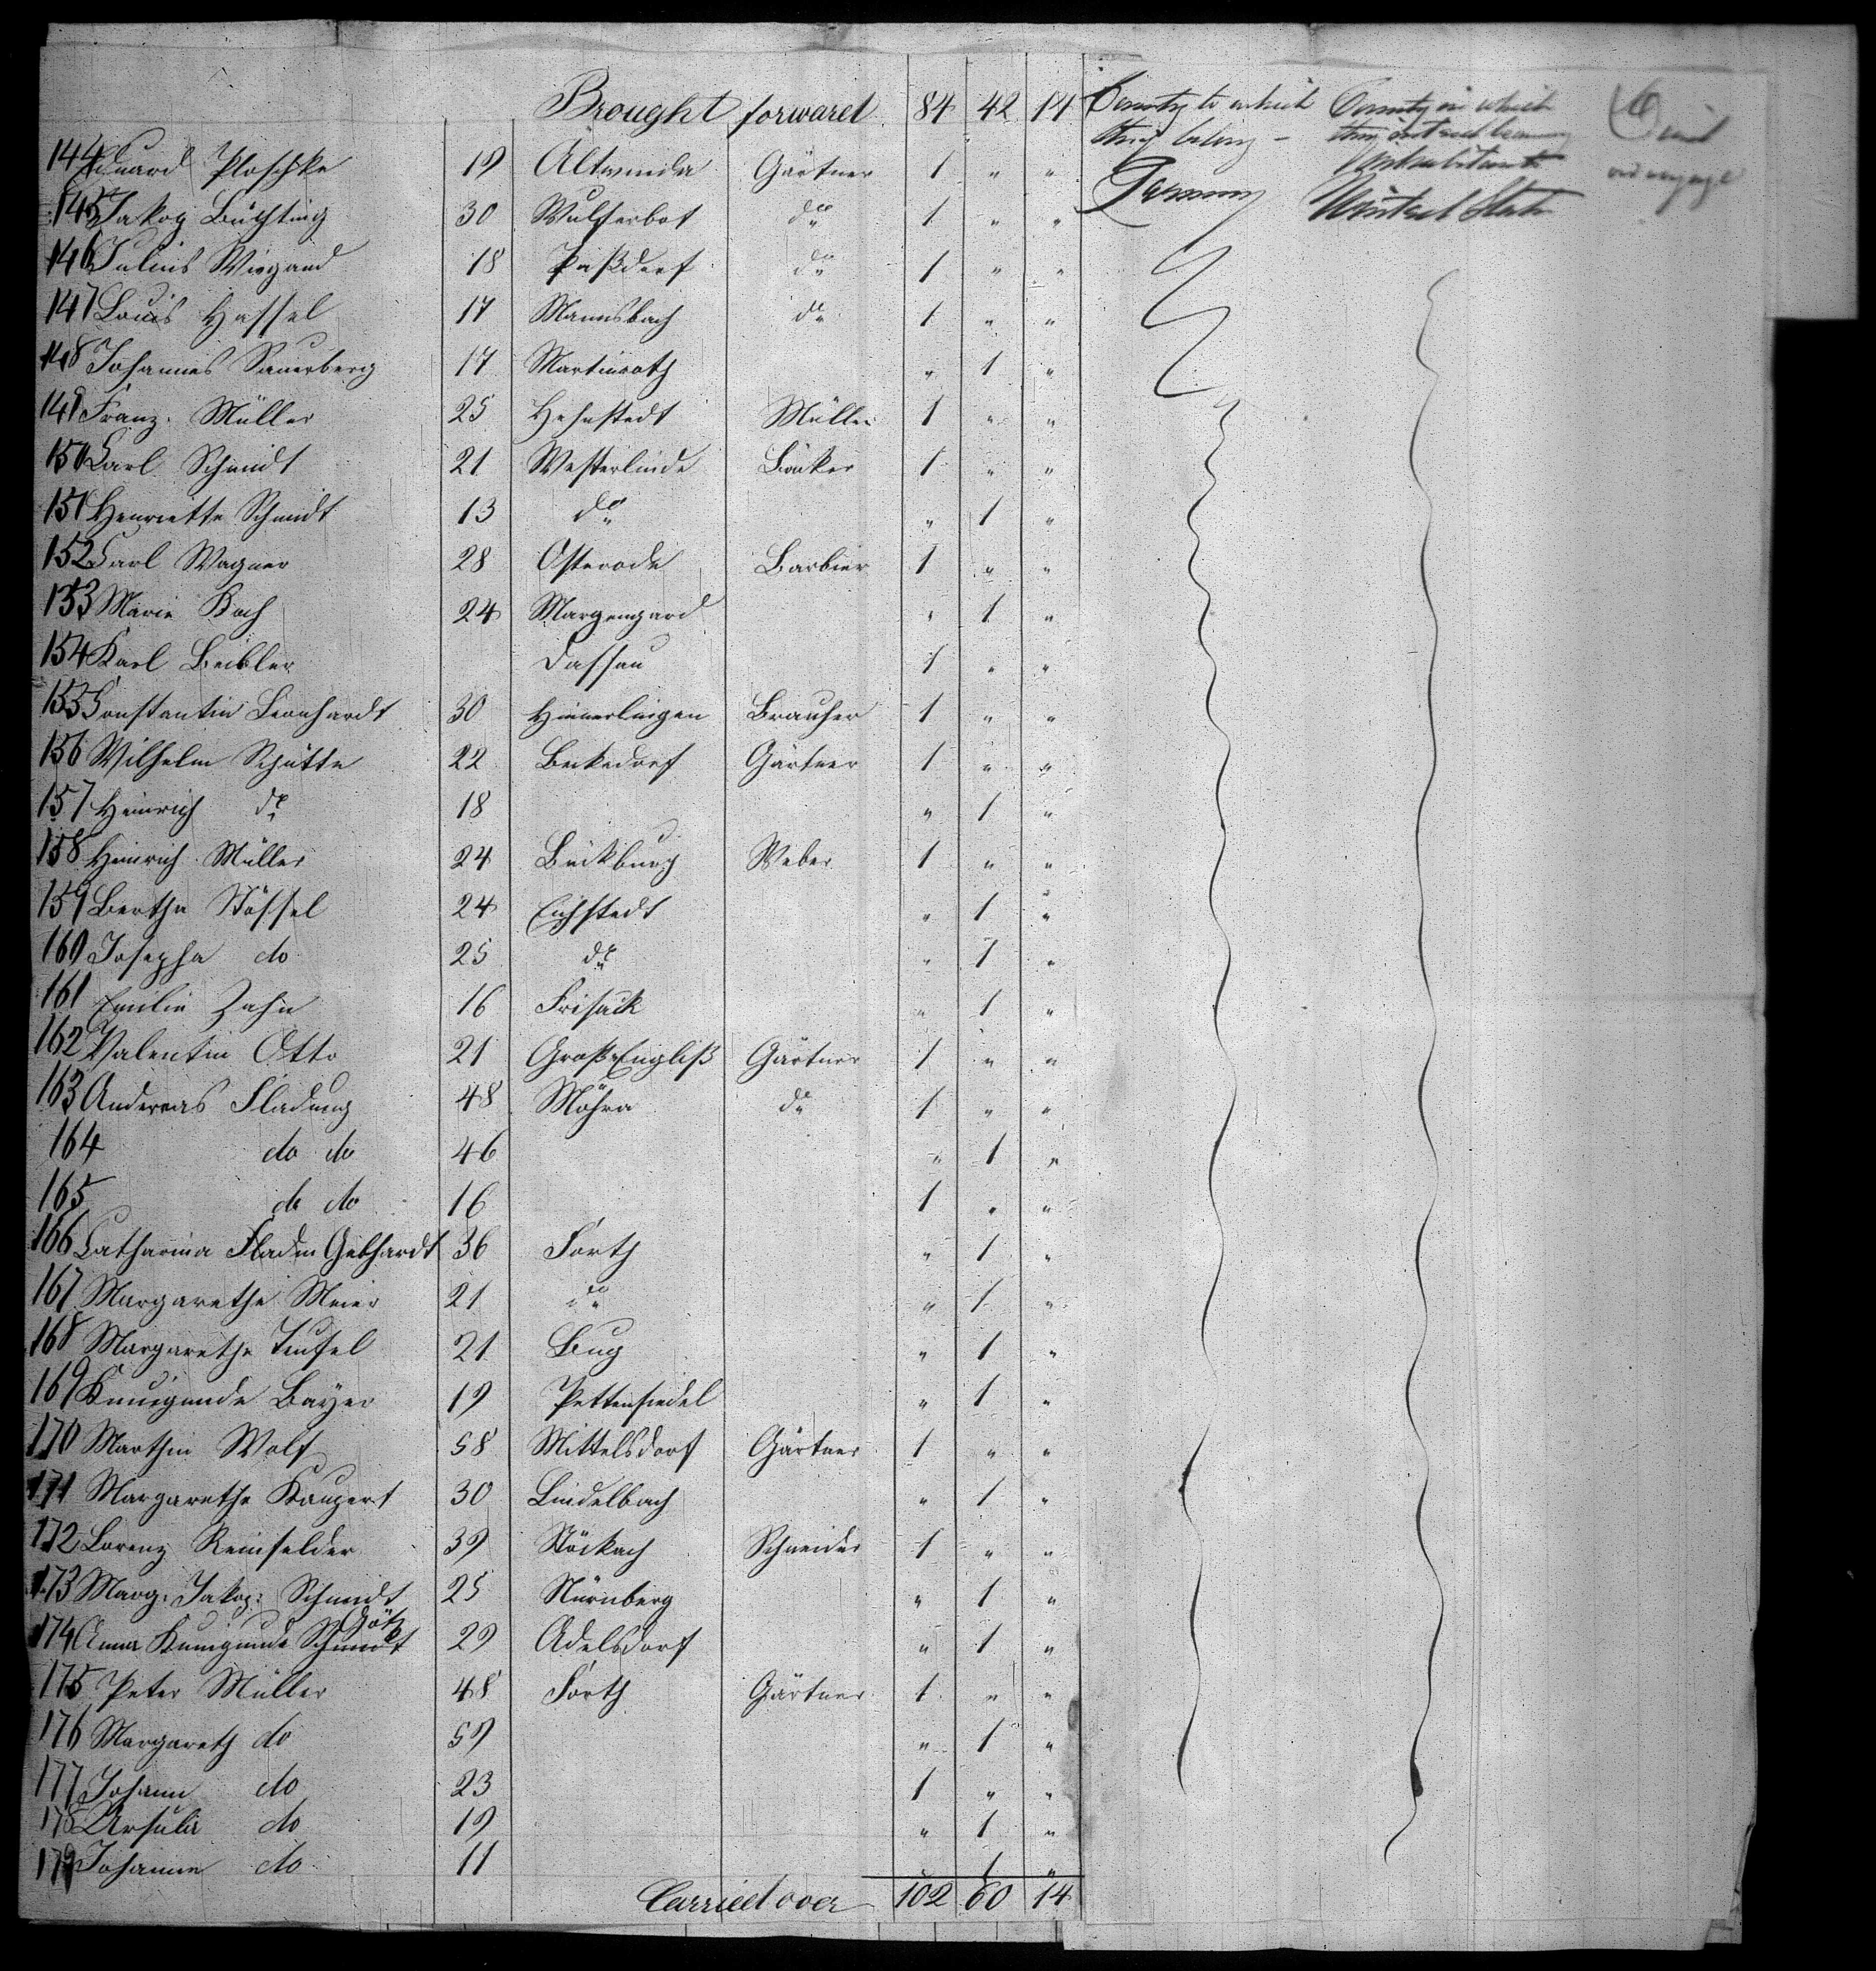 Brought forward 84 42 14 County to which County in which
they belong – they intend becoming
Inhabitants
Germany United States
144 Eduard Ploschke 19 Gärtner 1 " "
145 Jakop Büchting 30 do 1 " "
146 Julius Wiegand 18 Paßdorf do 1 " "
147 Louis Hassel 17 Mannsbach do 1 " "
148 Johannes Sauerberg 17 Martinroth " 1 "
149 Franz Müller 25 Hehnstedt Müller 1 " "
150 Carl Schmidt 21 Westerlinde Bäcker 1 " "
151 Henriette Schmidt 13 do " 1 "
152 Carl Wagner 28 Osterode Barbier 1 " "
153 Marie Koch 24 " 1 "
154 Karl Beibler Dassau 1 " "
155 Constantin Leonhardt 30 Himmerlingen Brauher 1 " "
156 Wilhelm Schütte 22 Beckedorf Gärtner 1 " "
157 Heinrich do 18 " 1 "
158 Heinrich Müller 24 Bückburg Weber 1 " "
159 Bertha Stössel 24 Eichstedt " 1 "
160 Josepha do 25 do " 1 "
161 Emilie Zahn 16 Frisack " 1 "
162 Valentin Otto 21 Groß Engliß Gärtner 1 " "
163 Andereas Fladung 48 Möhra do 1 " "
164 do do 46 " 1 "
165 do do 16 1 " "
166 Catharina Gebhardt 36 Forth " 1 "
167 Margarethe Meier 21 do " 1 "
168 Margarethe Teufel 21 Bug " 1 "
169 Kunigunde Bayer 19 Pettensiedel " 1 "
170 Marthin Wolf 58 Mittelsdorf Gärtner 1 " "
171 Margarethe Kaupert 30 Lindelbach " 1 "
172 Lorenz Reinfelder 39 Stöckach Schneider 1 " "
173 Marg. Jakop: Schmidt 25 Nürnberg " 1 "
Götz
174 Anna Kunigunde Schmidt 29 Adelsdorf " 1 "
175 Peter Müller 48 Forth Gärtner 1 " "
176 Margareth do 59 " 1 "
177 Johann do 23 1 " "
178 Ursula do 19 " 1 "
179 Johanne do 11 1 "
Carried over 102 60 14